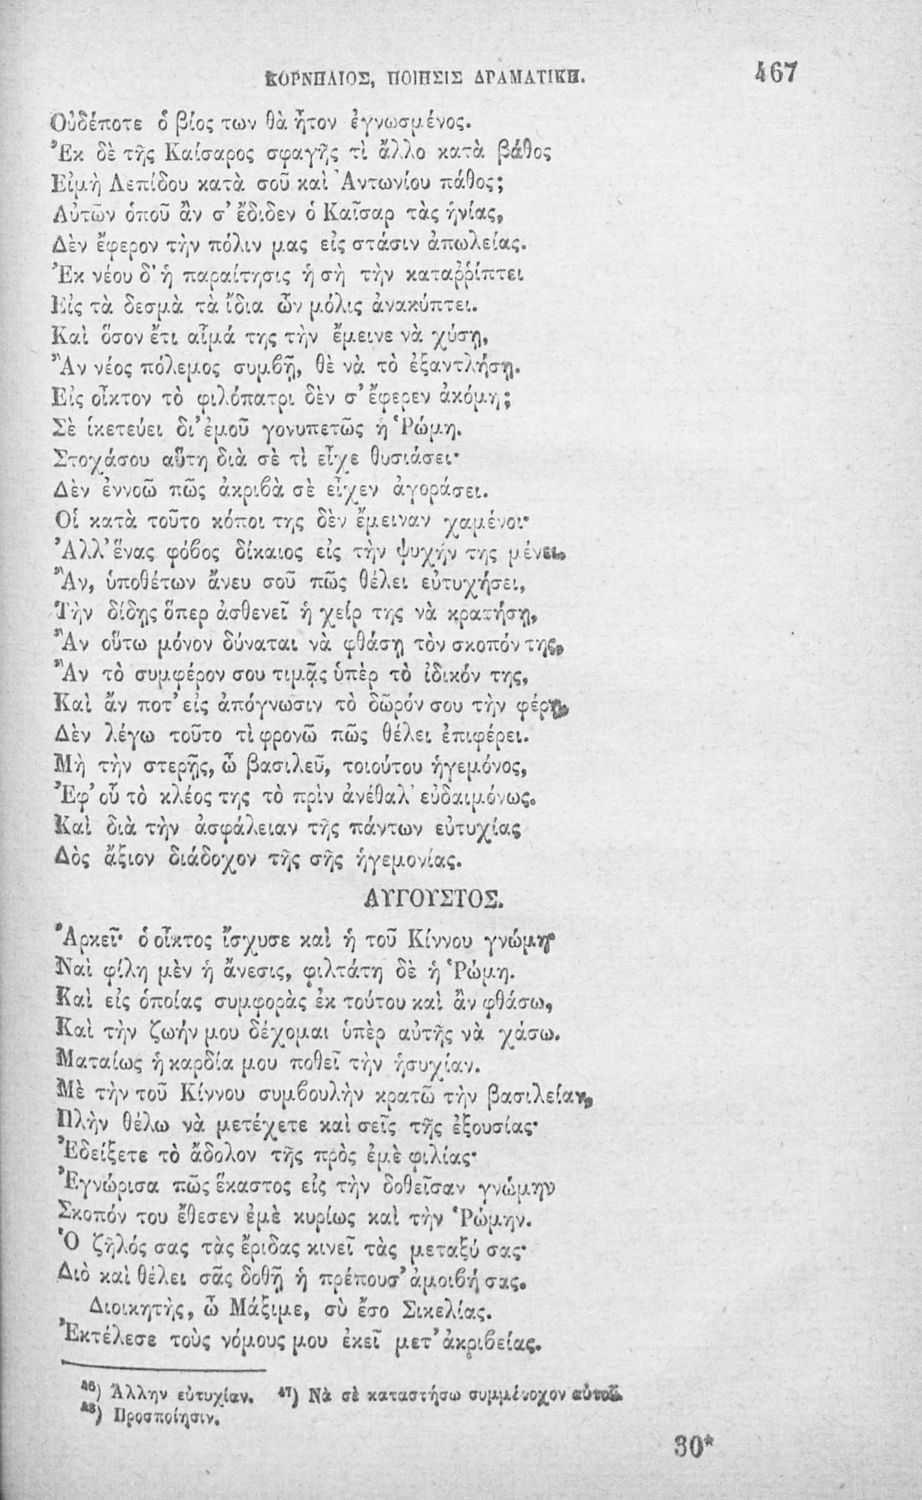 ΚΟΡΝΗΛΙΟΣ, ΠΟΙΗΣΙΣ ΔΡΑΜΑΤΙΚΗ. 467
Οὐδέποτε ὁ βίος των θὰ ἦτον ἐγνωσμένος.
Ἐκ δὲ τῆς Καίσαρος σφαγῆς τὶ ἄλλο κατὰ βάθος
Εἰμὴ Λεπίδου κατὰ σοῦ καὶ Ἀντωνίου πάθος;
Αὐτῶν ὁποῦ ἂν σ' ἔδιδεν ὁ Καῖσαρ τὰς ἡνίας,
Δὲν ἔφερον τὴν πόλιν μας εἰς στάσιν ἀπωλείας.
Ἐκ νέου δ' ἡ παραίτησις ἡ σὴ τὴν καταῤῥίπτει
Εἰς τὰ δεσμὰ τὰ ἴδια ὧν μόλις ἀνακύπτει.
Καὶ ὅσον ἔτι αἷμά της τὴν ἔμεινε νὰ χύσῃ,
Ἂν νέος πόλεμος συμβῇ, θὲ νὰ τὸ ἐξαντλήσῃ.
Εἰς οἶκτον τὸ φιλόπατρι δὲν σ' ἔφερεν ἀκόμη;
Σὲ ἱκετεύει δι' ἐμοῦ γονυπετῶς ἡ Ῥώμη.
Στοχάσου αὕτη διὰ σὲ τὶ εἶχε θυσιάσει·
Δὲν ἐννοῶ πῶς ἀκριβὰ σὲ εἶχεν ἀγοράσει.
Οἱ κατὰ τοῦτο κόποι της δὲν ἔμειναν χαμένοι·
Ἀλλ' ἕνας φόβος δίκαιος εἰς τὴν ψυχήν της μένει.
Ἂν, ὑποθέτων ἄνευ σοῦ πῶς θέλει εὐτυχήσει,
Τὴν δίδῃς ὅπερ ἀσθενεῖ ἡ χείρ της νὰ κρατήσῃ,
Ἂν οὕτω μόνον δύναται νὰ φθάσῃ τὸν σκοπόν της,
Ἂν τὸ συμφέρον σου τιμᾷς ὑπὲρ τὸ ἰδικόν της,
Καὶ ἄν ποτ' εἰς ἀπόγνωσιν τὸ δῶρόν σου τὴν φέρῃ,
Δὲν λέγω τοῦτο τὶ φρονῶ πῶς θέλει ἐπιφέρει.
Μὴ τὴν στερῇς, ὦ βασιλεῦ, τοιούτου ἡγεμόνος,
Ἐφ' οὗ τὸ κλέος της τὸ πρὶν ἀνέθαλ' εὐδαιμόνως.
Καὶ διὰ τὴν ἀσφάλειαν τῆς πάντων εὐτυχίας
Δὸς ἄξιον διάδοχον τῆς σῆς ἡγεμονίας.
ΑΥΓΟΥΣΤΟΣ.
Ἀρκεῖ· ὁ οἶκτος ἴσχυσε καὶ ἡ τοῦ Κίννου γνώμη·
Ναὶ φίλη μὲν ἡ ἄνεσις, φιλτάτη δὲ ἡ Ῥώμη.
Καὶ εἰς ὁποίας συμφορὰς ἐκ τούτου καὶ ἂν φθάσω,
Καὶ τὴν ζωήν μου δέχομαι ὑπὲρ αὐτῆς νὰ χάσω.
Ματαίως ἡ καρδία μου ποθεῖ τὴν ἡσυχίαν.
Μὲ τὴν τοῦ Κίννου συμβουλὴν κρατῶ τὴν βασιλείαν,
Πλὴν θέλω νὰ μετέχετε καὶ σεῖς τῆς ἐξουσίας·
Ἐδείξετε τὸ ἄδολον τῆς πρὸς ἐμὲ φιλίας·
Ἐγνώρισα πῶς ἕκαστος εἰς τὴν δοθεῖσαν γνώμην
Σκοπόν του ἔθεσεν ἐμὲ κυρίως καὶ τὴν Ῥώμην.
Ὁ ζῆλός σας τὰς ἔριδας κινεῖ τὰς μεταξύ σας·
Διὸ καὶ θέλει σᾶς δοθῇ ἡ πρέπουσ' ἀμοιβή σας.
Διοικητὴς, ὦ Μάξιμε, σὺ ἔσο Σικελίας.
Ἐκτέλεσε τοὺς νόμους μου ἐκεῖ μετ' ἀκριβείας.
46) Ἄλλην εὐτυχίαν. 47) Νὰ σὲ καταστήσω συμμέτοχον αὐτοῦ.
48) Προσποίησιν.
30*